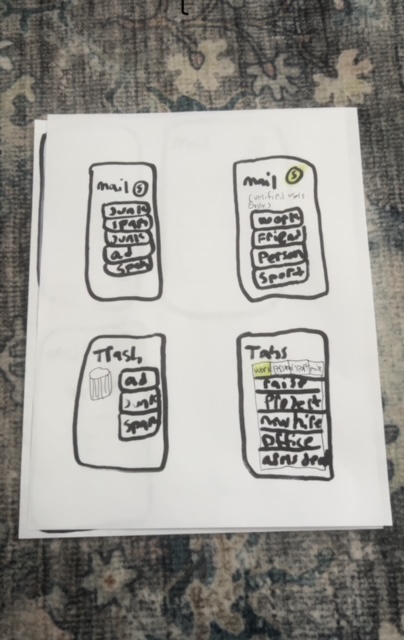 mail S
Junk
spam
Junk
ad
spam
mail S
(unified users
only)
work
Friend
Person
Sport
Trash
ad
Junk
spam
Tabs
work
raise
Project
new hire
office